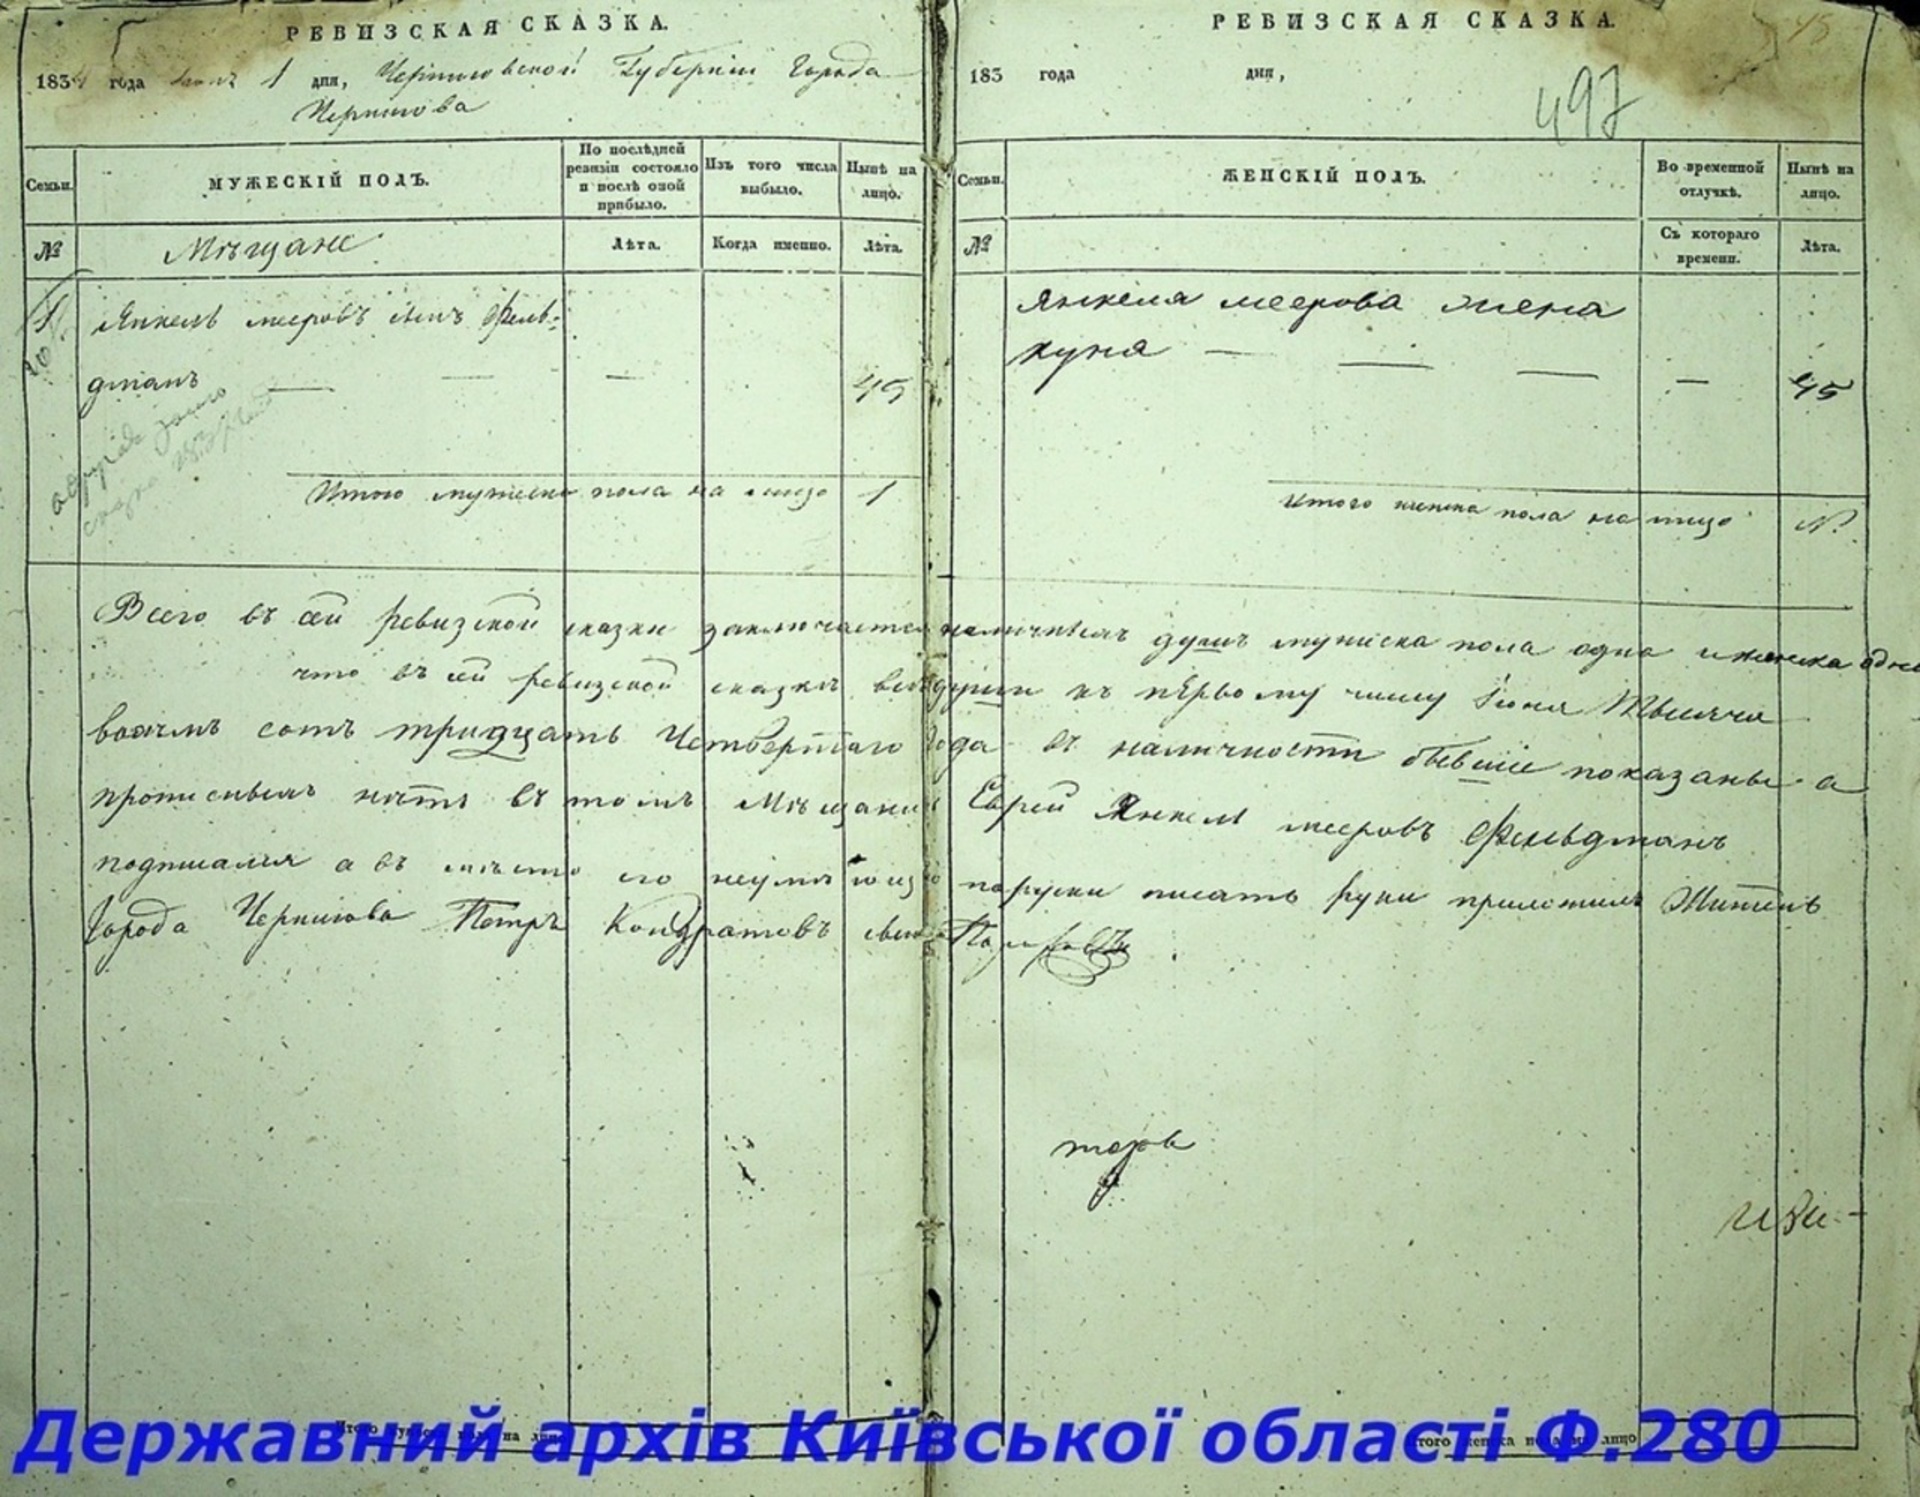 РЕВИЗСКАЯ СКАЗКА.
1834 года июня 1 дня, Черниговской Губернии Города
Чернигова
Семьи.
МУЖЕСКІЙ ПОЛЪ.
По послѣдней ревизіи состояло и послѣ оной прибыло.
Изъ того числа выбыло.
Нынѣ на лицо.
№
Мѣщане
Лѣта.
Когда именно.
Лѣта.
1
Янкель мееровъ сынъ Фельд-
дманъ
45
Итого мужеска пола на лицо 1
РЕВИЗСКАЯ СКАЗКА.
45
183 года дня,
497
Семьи.
ЖЕНСКІЙ ПОЛЪ.
Во временной отлучкѣ.
Нынѣ на лицо.
№
Съ котораго времени.
Лѣта.
Янкеля меерова жена
хуня
45
Итого женска пола на лицо
Всего въ сей ревизской сказки заключается наличныхъ душъ мужеска пола одна и женска одна
что въ сей ревизской сказкѣ всѣ души къ первому числу Іюня Тысяча
восѣмъ сотъ тридцать Четвертаго года въ наличности бывшіе показаны а
прописныхъ нѣтъ въ томъ Мѣщанинъ Еврей Янкель мееровъ Фельдманъ
подписался а въ мѣсто его неумѣющаго поруски писать руку приложилъ Житель
Города Чернигова Петръ Кондратовъ сынъ
Державний архів Київської області Ф.280
Итого мужеска пола на лицо
Итого женска пола на лицо